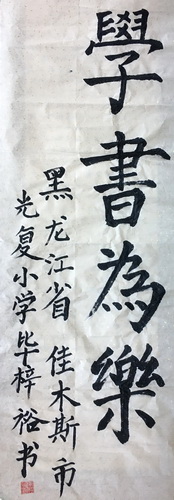 學書為樂
黑龙江省 佳木斯市
光复小学毕梓裕书